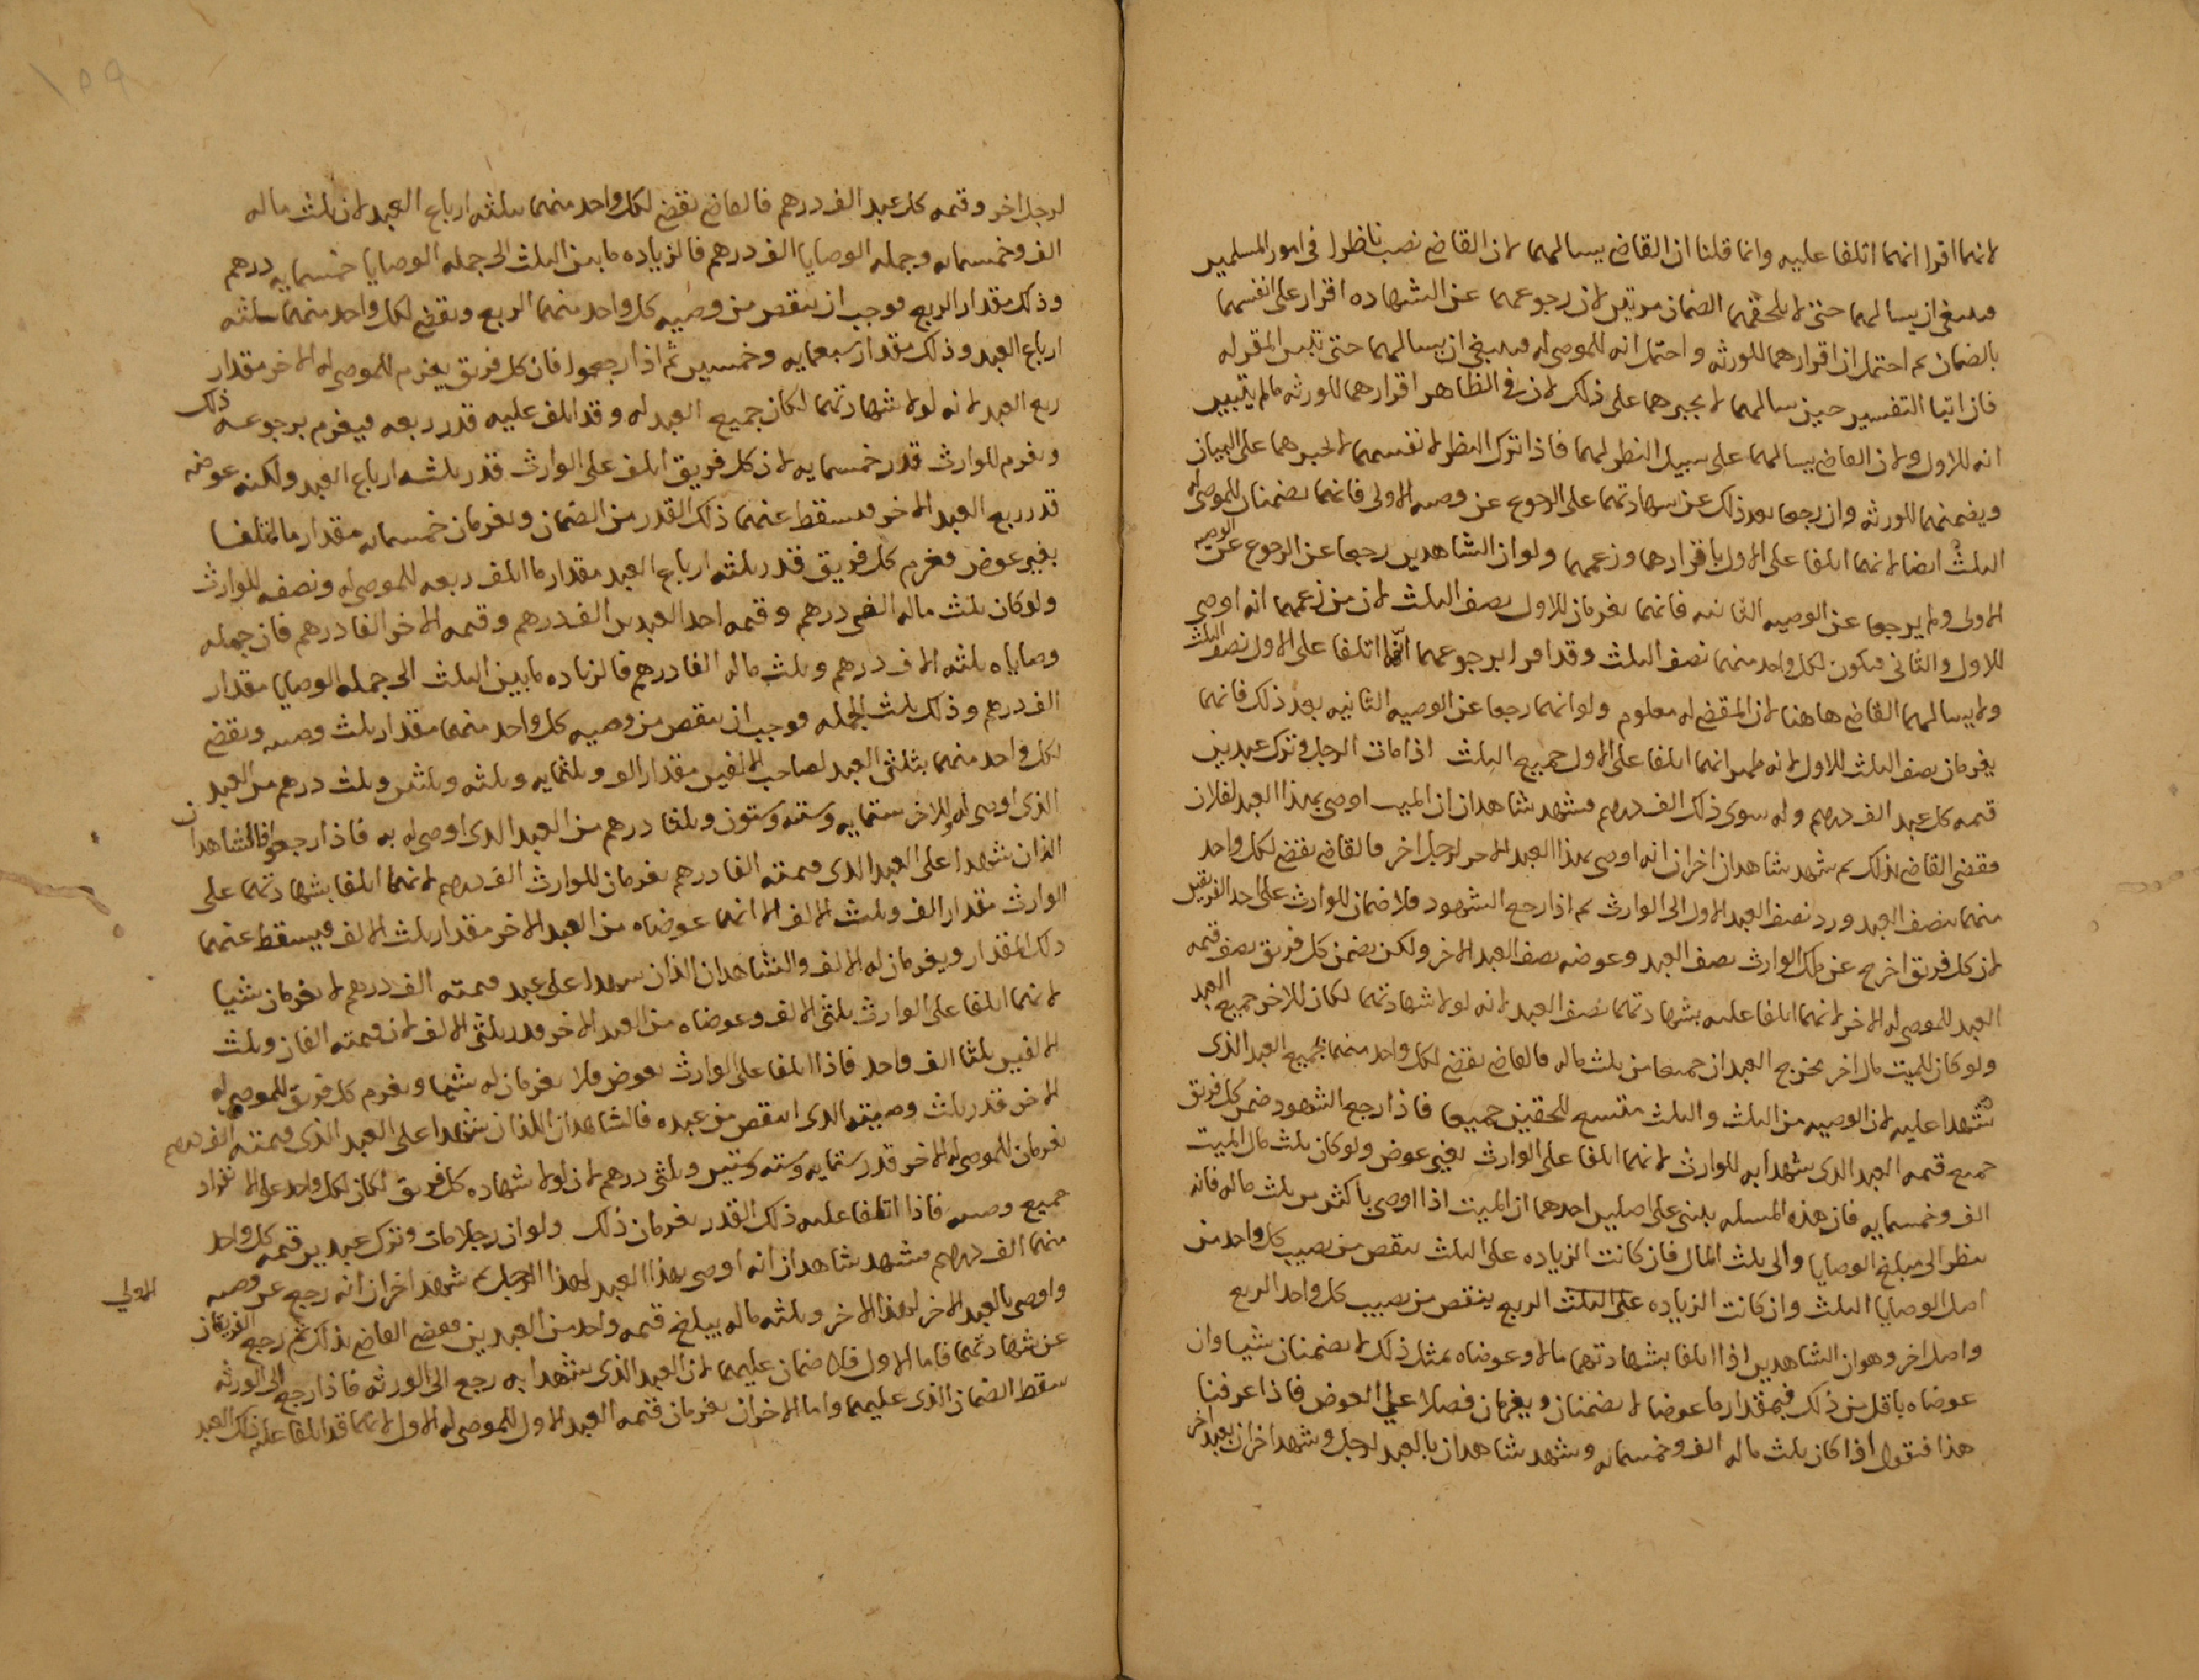 لانهما اقرا انهما اتلفا عليه وانما قلنا ان القاضي يسالهما لان القاضي نصب ناظرا في امور المسلمين
فينبغي ان يسالهما حتى لا يلحقهما الضمان مرتين لان رجوعهما عن الشهاده اقرار على انفسهما
بالضمان ثم احتمل ان اقرارهما للورثه واحتمل انه للموصى له فينبغي ان يسالهما حتى يتبين المقر له
فان اتيا التفسير حين سالهما لا يجبرهما على ذلك لان في الظاهر اقرارهما للورثه ما لم يتبين
انه للاول ولان القاضي يسالهما على سبيل النظر لهما فاذا ترك النظر لانفسهما لا يجبرهما على البيان
ويضمنهما للورثه وان رجعا بعد ذلك عن شهادتهما على الرجوع عن وصيه الاولى فانهما يضمنان للموصى له
الثلث ايضا لانهما اتلفا على الاول باقرارهما وزعمهما ولو ان الشاهدين رجعا عن الرجوع عن الوصيه
الاولى ولم يرجعا عن الوصيه الثانيه فانهما يغرمان للاول نصف الثلث لان من زعمهما انه اوصى
للاول والثاني فيكون لكل واحد منهما نصف الثلث وقد اقرا برجوعهما انهما اتلفا على الاول نصف الثلث
ولا يسالهما القاضي هاهنا لان المقضي له معلوم ولو انهما رجعا عن الوصيه الثانيه بعد ذلك فانهما
يغرمان نصف الثلث للاول لانه ظهر انهما اتلفا على الاول جميع الثلث اذا مات الرجل وترك عبدين
قيمه كل عبد الف درهم وله سوى ذلك الف درهم فشهد شاهدان ان الميت اوصى بهذا العبد لفلان
فقضى القاضي بذلك ثم شهد شاهدان اخران انه اوصى بهذا العبد الاخر لرجل اخر فالقاضي يقضي لكل واحد
منهما بنصف العبد ورد نصف العبد الاول الى الوارث ثم اذا رجع الشهود فلا ضمان للوارث على احد الفريقين
لان كل فريق اخرج عن ملك الوارث نصف العبد وعوضه نصف العبد الاخر ولكن يضمن كل فريق نصف قيمه
العبد للموصى له الاخر لانهما اتلفا عليه بشهادتهما نصف العبد لانه لولا شهادتهما لكان للاخر جميع العبد
ولو كان للميت مال اخر يخرج العبدان جميعا من ثلث ماله فالقاضي يقضي لكل واحد منهما بجميع العبد الذي
شهدا عليه لان الوصيه من الثلث والثلث متسع للحقين جميعا فاذا رجع الشهود ضمن كل فريق
جميع قيمه العبد الذي شهدا به للوارث لانهما اتلفا على الوارث بغير عوض ولو كان ثلث مال الميت
الف وخمسمايه فان هذه المسله يبتنى على اصلين احدهما ان الميت اذا اوصى باكثر من ثلث ماله فانه
ينظر الى مبلغ الوصايا والى ثلث المال فان كانت الزياده على الثلث ينقص من نصيب كل واحد من
اهل الوصايا الثلث وان كانت الزياده على الثلث الربع ينقص من نصيب كل واحد الربع
واصل اخر وهو ان الشاهدين اذا اتلفا بشهادتهما مالا وعوضاه بمثل ذلك لا يضمنان شيا وان
عوضاه باقل من ذلك فبمقدار ما عوضا لا يضمنان ويغرمان فضلا على العوض فاذا عرفنا
هذا فنقول اذا كان ثلث ماله الف وخمسمايه وشهد شاهدان بالعبد لرجل وشهد اخران بعبد اخر
١٥٩
لرجل اخر وقيمه كل عبد الف درهم فالقاضي يقضي لكل واحد منهما بثلثه ارباع العبد لان ثلث ماله
الف وخمسمايه وجمله الوصايا الفا درهم فالزياده ما بين الثلث الى جمله الوصايا خمسمايه درهم
وذلك مقدار الربع فوجب ان ينقص من وصيه كل واحد منهما الربع ويقضي لكل واحد منهما بثلثه
ارباع العبد وذلك مقدار سبعمايه وخمسين ثم اذا رجعوا فان كل فريق يغرم للموصى له الاخر مقدار
ربع العبد لانه لولا شهادتهما لكان جميع العبد له وقد اتلف عليه قدر ربعه فيغرم برجوعه ذلك
ويغرم للوارث قدر خمسمايه لان كل فريق اتلف على الوارث قدر ثلثه ارباع العبد ولكنه عوضه
قدر ربع العبد الاخر فيسقط عنهما ذلك القدر من الضمان ويغرمان خمسمايه مقدار ما اتلفا
بغير عوض فغرم كل فريق قدر ثلثه ارباع العبد مقدار ما اتلف ربعه للموصى له ونصفه للوارث
ولو كان ثلث ماله الفي درهم وقيمه احد العبدين الف درهم وقيمه الاخر الفا درهم فان جمله
وصاياه ثلثه الاف درهم وثلث ماله الفا درهم فالزياده ما بين الثلث الى جمله الوصايا مقدار
الف درهم وذلك ثلث الجمله فوجب ان ينقص من وصيه كل واحد منهما مقدار ثلث وصيه ويقضي
لكل واحد منهما بثلثي العبد لصاحب الالفين مقدار الف وثلثمايه وثلثه وثلثين وثلث درهم من العبد
الذي اوصى له وللاخر ستمايه وسته وستون وثلثا درهم من العبد الذي اوصى له به فاذا رجعوا فالشاهدان
الذان شهدا على العبد الذي قيمته الفا درهم يغرمان للوارث الف درهم لانهما اتلفا بشهادتهما على
الوارث مقدار الف وثلث الالف الا انهما عوضاه من العبد الاخر مقدار ثلث الالف فيسقط عنهما
ذلك المقدار ويغرمان له الالف والشاهدان الذان شهدا على عبد قيمته الف درهم لا يغرمان شيا
لانهما اتلفا على الوارث ثلثي الالف وعوضاه من العبد الاخر قدر ثلثي الالف لان قيمته الفان وثلث
الالفين ثلثا الف واحد فاذا اتلفا على الوارث بعوض فلا يغرمان له شيا ويغرم كل فريق للموصى له
الاخر قدر ثلث وصيته الذي انتقص من عبده فالشاهدان اللذان شهدا على العبد الذي قيمته الف درهم
يغرمان للموصى له الاخر قدر ستمايه وسته وستين وثلثي درهم لان لولا شهاده كل فريق لكان لكل واحد على الانفراد
جميع وصيه فاذا اتلفا عليه ذلك القدر يغرمان ذلك ولو ان رجلا مات وترك عبدين قيمه كل واحد
منهما الف درهم فشهد شاهدان انه اوصى بهذا العبد لهذا الرجل ثم شهد اخران انه رجع عن وصيه
الاولى
واوصى بالعبد الاخر لهذا الاخر وثلثه ماله يبلغ قيمه واحد من العبدين فقضى القاضي بذلك ثم رجع الفريقان
عن شهادتهما فاما الاول فلا ضمان عليهما لان العبد الذي شهدا به رجع الى الورثه فاذا رجع الى الورثه
سقط الضمان الذي عليهما واما الاخران يغرمان قيمه العبد الاول للموصى له الاول لانهما قد اتلفا عليه ذلك العبد